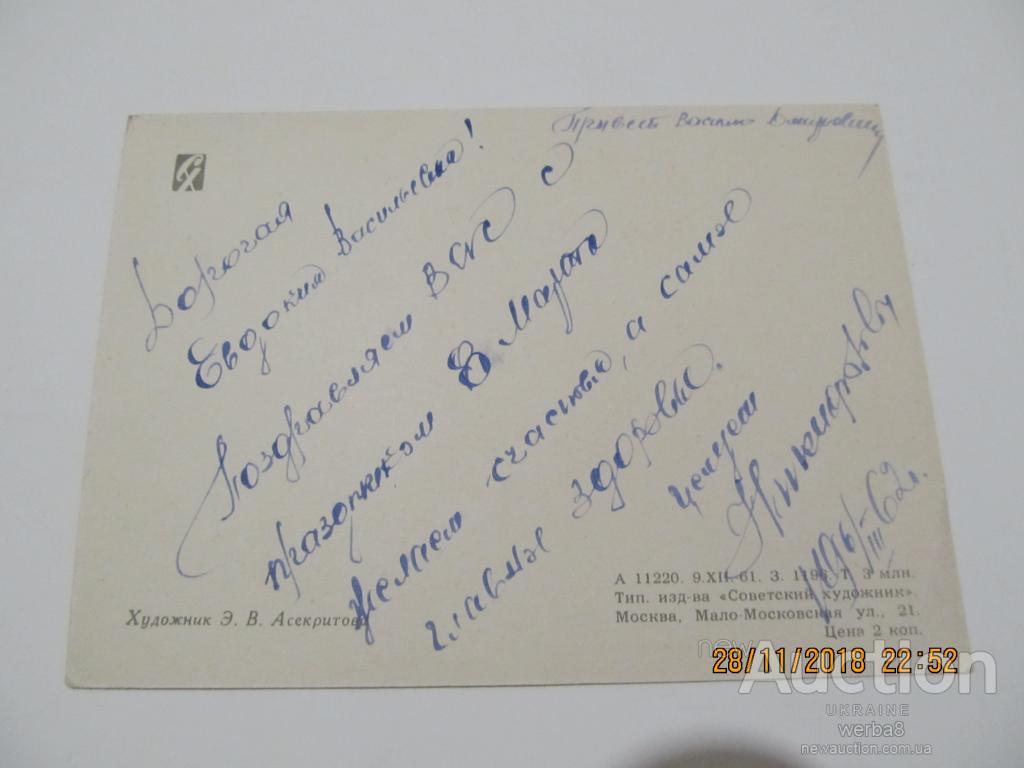 Привет Василь Дмитровичу
Дорогая
Евдокия Васильевна!
Поздравляем Вас с
праздником 8 Марта
Желаем счастья, а самое
главное здоровья.
Целуем
Никифоровы
III-62г.
Художник Э. В. Асекритова
А 11220. 9.XII-61. З. 1196. Т. 3 млн.
Тип. изд-ва «Советский художник».
Москва, Мало-Московская ул., 21.
Цена 2 коп.
28/11/2018 22:52
newAuction
UKRAINE
werba8
newauction.com.ua